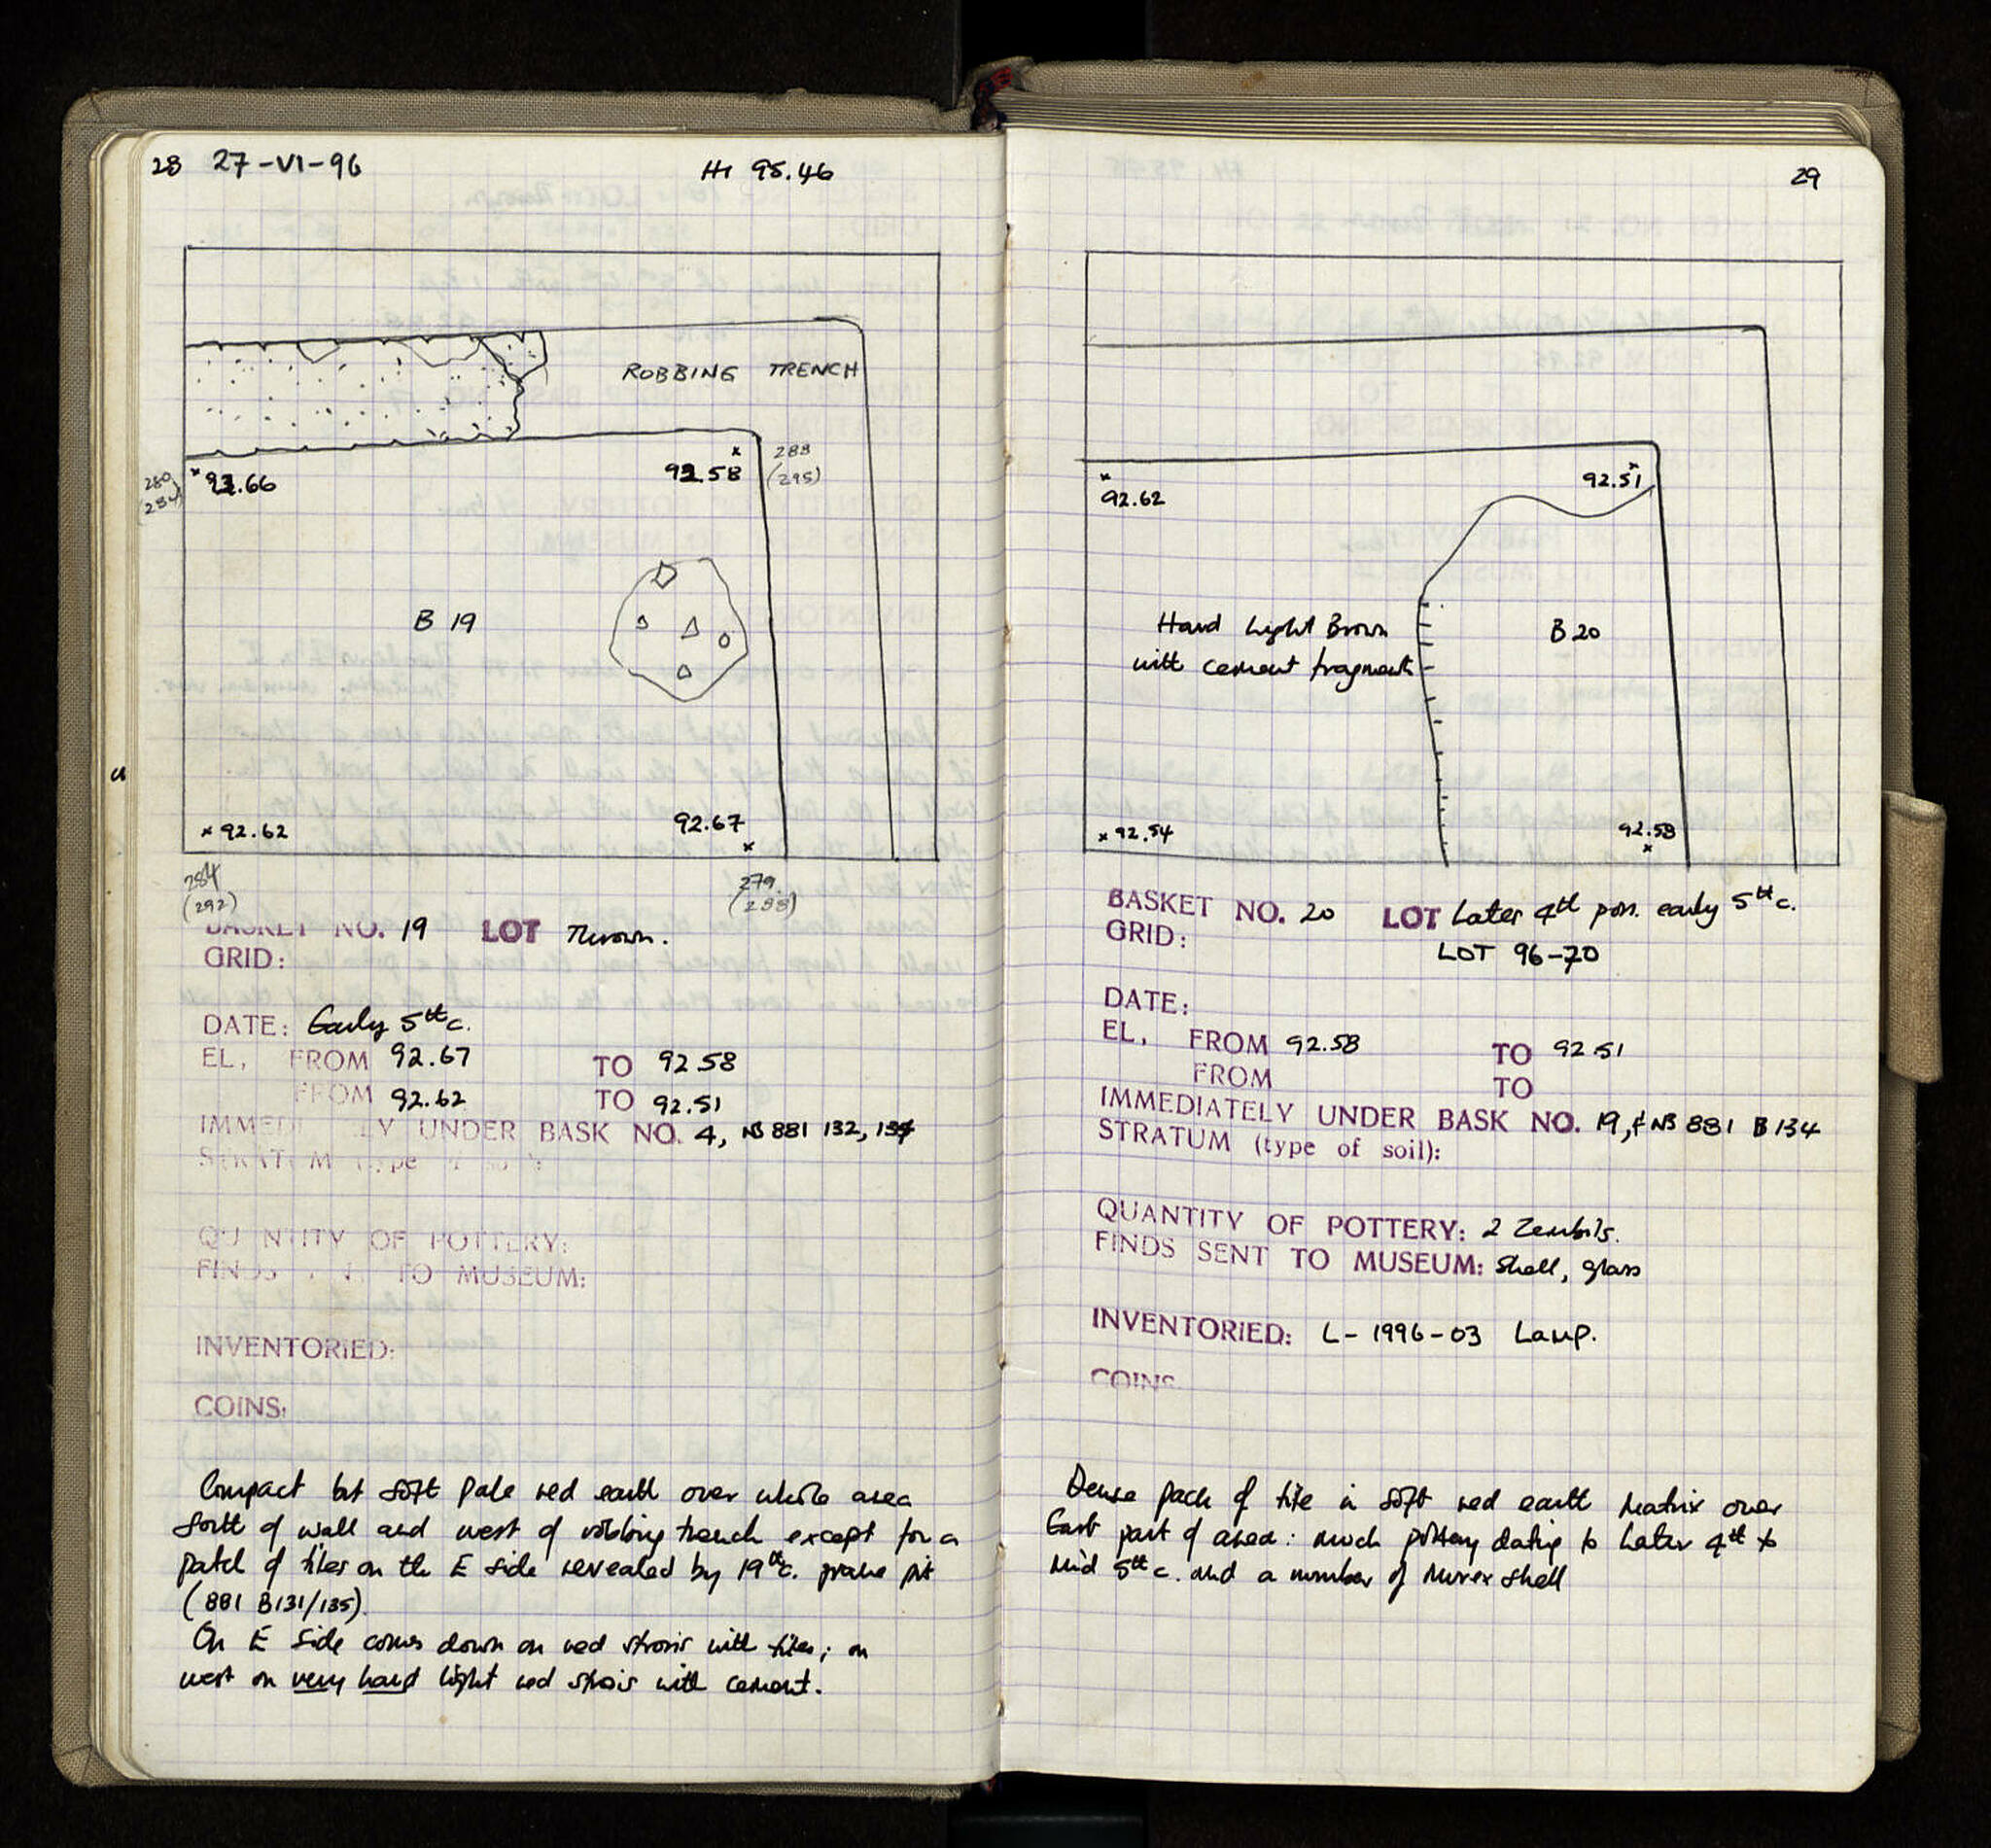 28 27-VI-96 HI 95.46
ROBBING TRENCH
288
(295)
92.66
92.58
280
B 19
92.62
92.67
284
(292)
279
(288)
BASKET NO. 19 LOT Thrown.
GRID:
DATE: Early 5th c.
EL, FROM 92.67 TO 92.58
FROM 92.62 TO 92.51
IMMEDIATELY UNDER BASK NO. 4, NB 881 132, 134
STRATUM (type of soil):
QUANTITY OF POTTERY:
FINDS SENT TO MUSEUM:
INVENTORIED:
COINS:
Compact but soft pale red earth over whole area
South of wall and west of robbing trench except for a
patch of tiles on the E side revealed by 19th c. probe pit
(881 B131/135).
On E side comes down on red strosis with tiles; on
west on very hard light red strosis with cement.
29
92.62
92.51
Hard Light Brown
with cement fragments
B 20
92.54
92.58
BASKET NO. 20 LOT Later 4th poss. early 5th c.
GRID:
LOT 96-70
DATE:
EL, FROM 92.58 TO 92 51
FROM TO
IMMEDIATELY UNDER BASK NO. 19, + NB 881 B 134
STRATUM (type of soil):
QUANTITY OF POTTERY: 2 Zembils.
FINDS SENT TO MUSEUM: Shell, glass
INVENTORIED: L- 1996-03 Lamp.
COINS
Dense pack of tile in soft red earth matrix over
East part of area: much pottery dating to Later 4th to
Mid 5th c. and a number of Murex shell